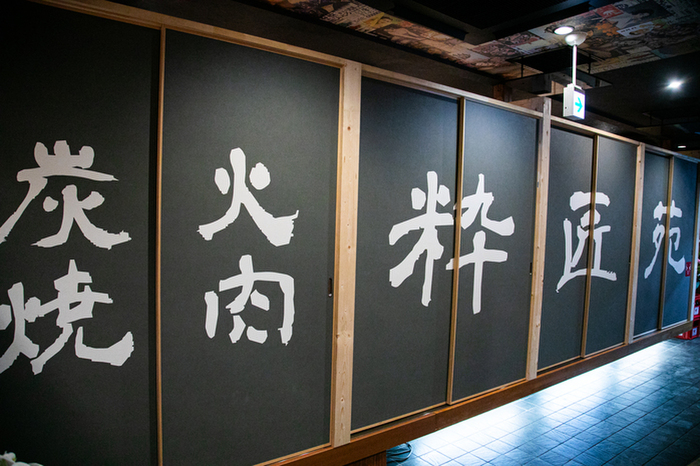 炭火
焼肉
粋匠苑